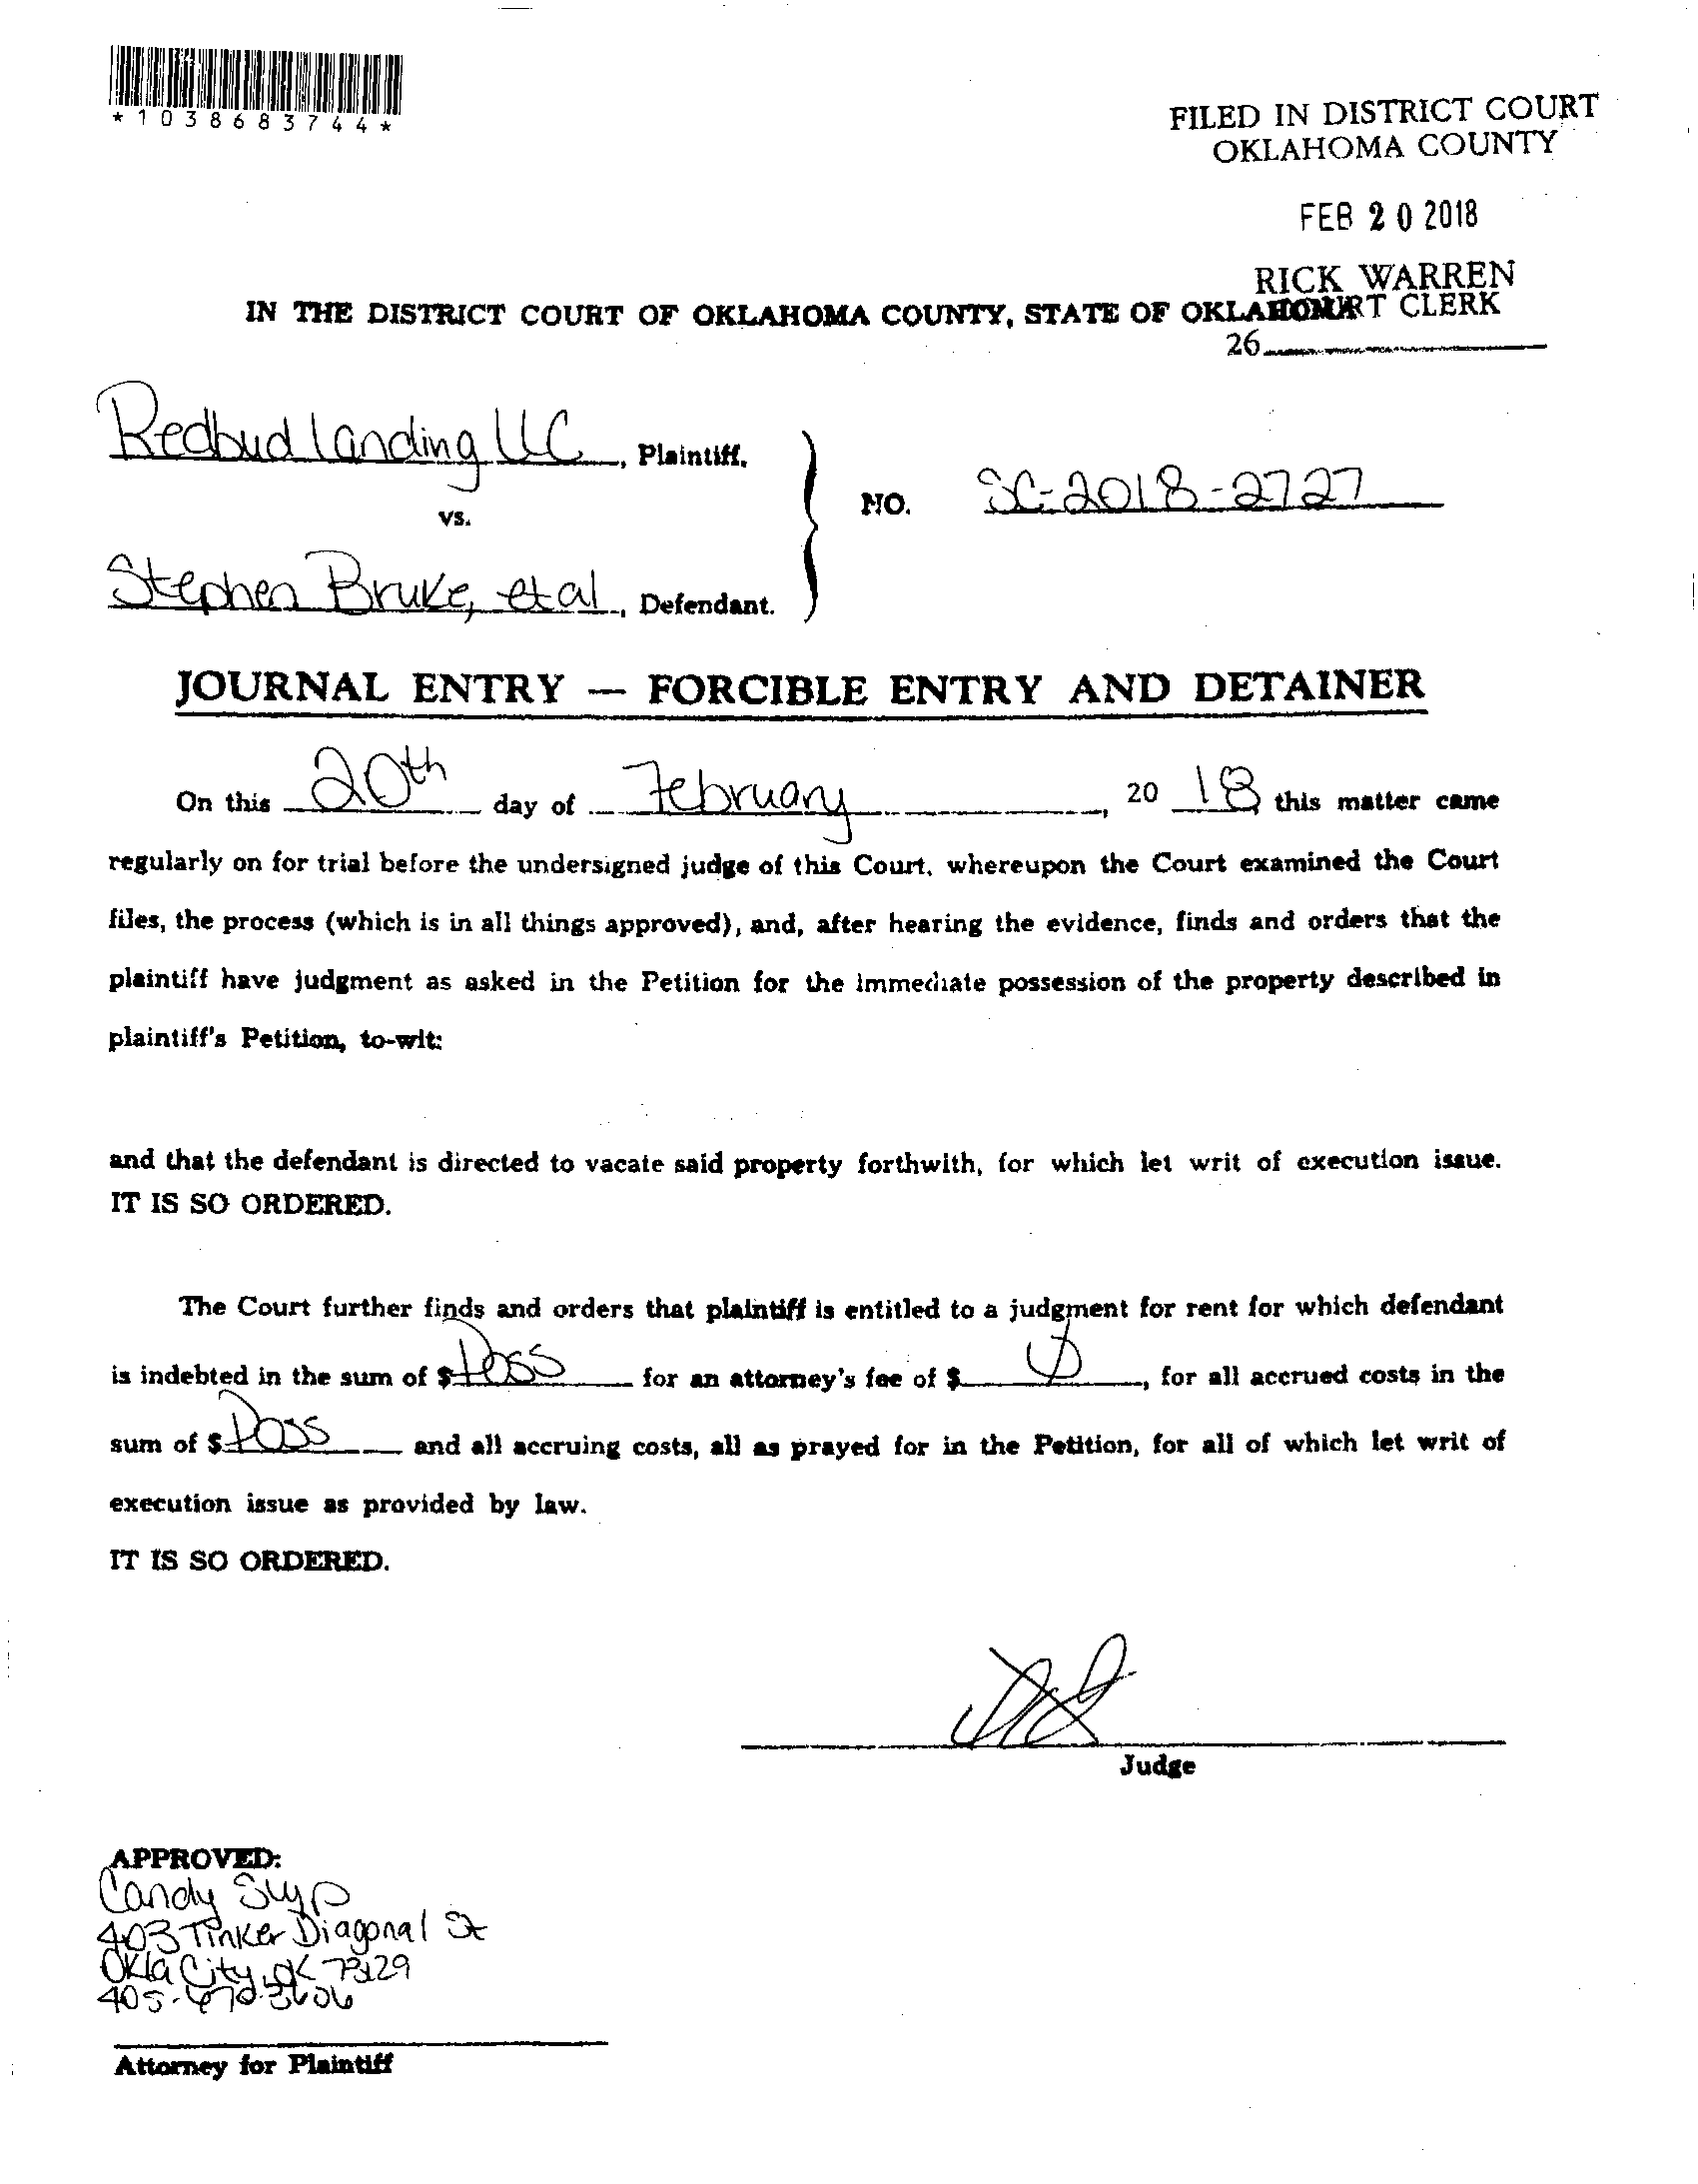 *1038683744*
FILED IN DISTRICT COURT
OKLAHOMA COUNTY
FEB 20 2018
RICK WARREN
COURT CLERK
26
IN THE DISTRICT COURT OF OKLAHOMA COUNTY, STATE OF OKLAHOMA
Redbud Landing LLC, Plaintiff,
vs.
NO. SC-2018-2727
Stephen Bruke, et al, Defendant.
JOURNAL ENTRY — FORCIBLE ENTRY AND DETAINER
On this 20th day of February, 20 18 this matter came
regularly on for trial before the undersigned judge of this Court, whereupon the Court examined the Court
files, the process (which is in all things approved), and, after hearing the evidence, finds and orders that the
plaintiff have judgment as asked in the Petition for the immediate possession of the property described in
plaintiff's Petition, to-wit:
and that the defendant is directed to vacate said property forthwith, for which let writ of execution issue.
IT IS SO ORDERED.
The Court further finds and orders that plaintiff is entitled to a judgment for rent for which defendant
is indebted in the sum of $ Poss for an attorney's fee of $ , for all accrued costs in the
sum of $ Poss and all accruing costs, all as prayed for in the Petition, for all of which let writ of
execution issue as provided by law.
IT IS SO ORDERED.
Judge
APPROVED:
Candy Slyp
403 Tinker Diagonal St
Okla City, OK 73129
Attorney for Plaintiff